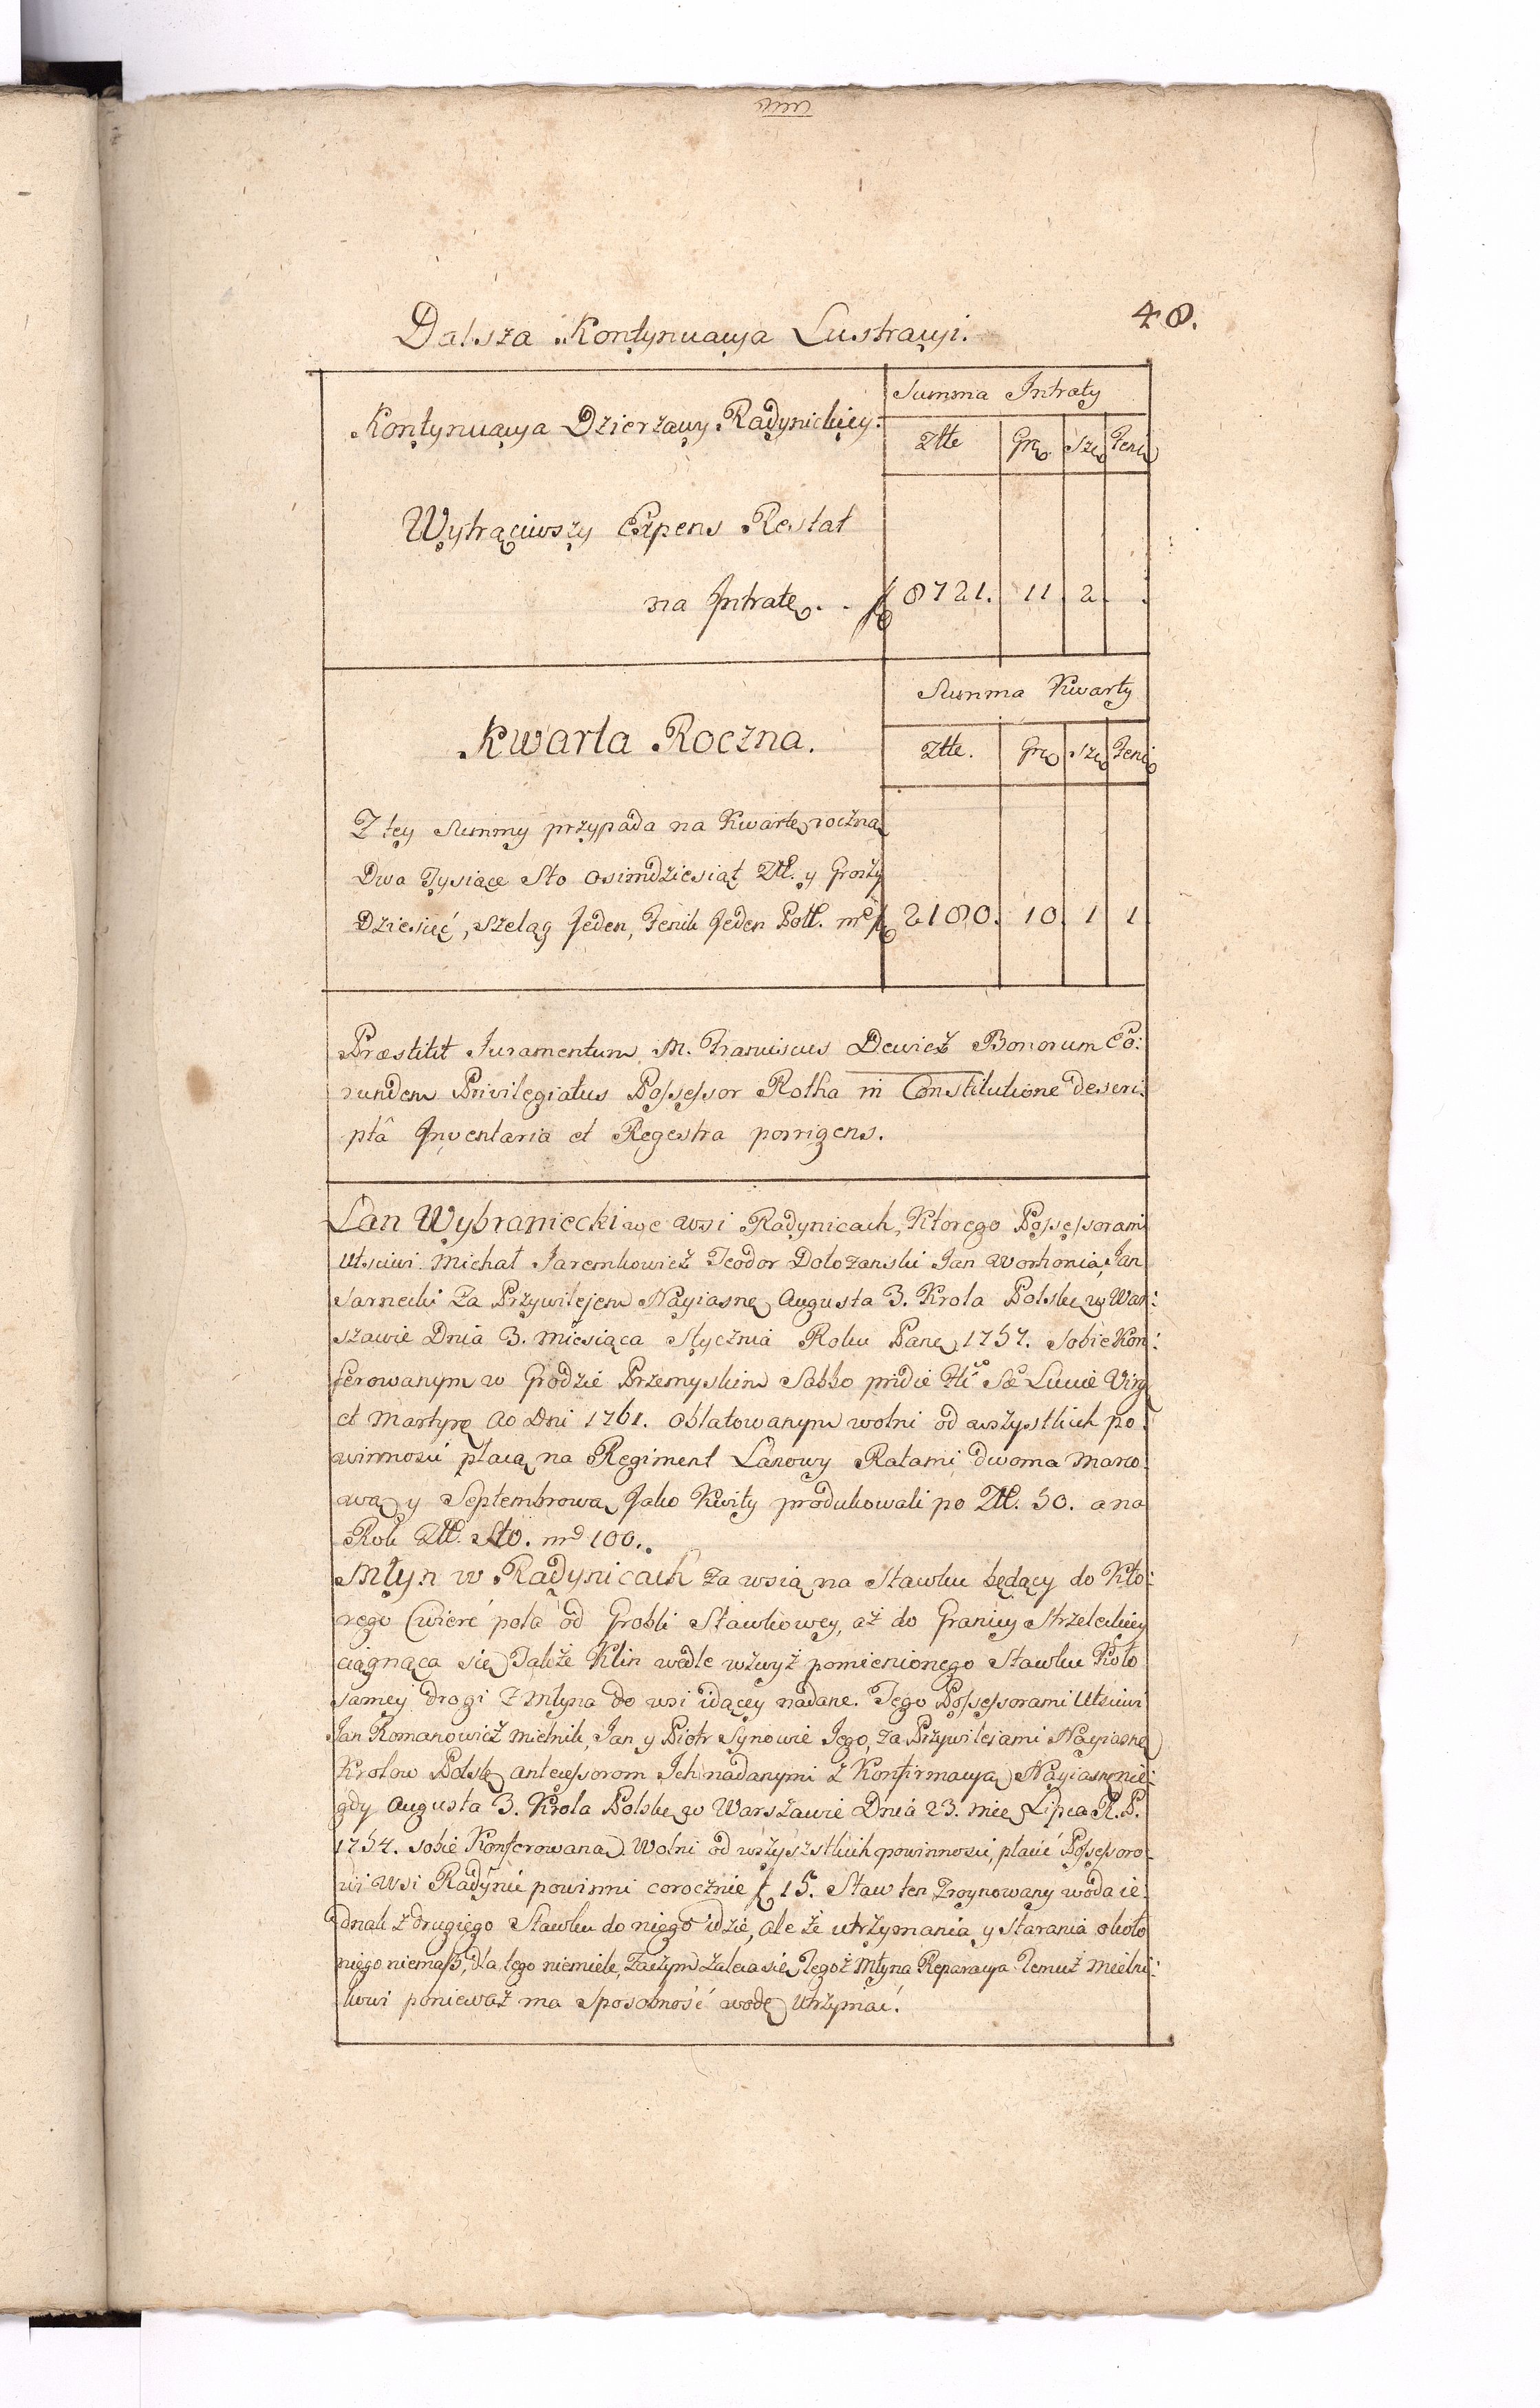 48.
Dalsza Kontynuacya Lustracyi.
Kontynuacya Dzierzawy Radynickiey.
Summa Intraty
Złłe Gr. Sze Feni
Wytrąciwszy Expens Restat
na Intratę . . f 8721. 11. 2.
Summa Kwarty
Kwarta Roczna.
Złłe. Gr. Sze Feni
Z tey Summy przypada na Kwartę roczną
Dwa Tysiące Sto Osimdziesiąt Złł. y Groszy
Dziesięć, Szeląg Jeden, Fenik Jeden Poll. md f 2180. 10. 1 1
Præstitit Juramentum M. Franciscus Dewicz Bonorum Eo:
rundem Privilegiatus Possessor Rotha in Constitutione descri:
ptâ Inventaria et Regestra porrigens.
Łan Wybraniecki we wsi Radynicach, Ktorego Possessorami
Utściwi Michał Jaremkowicz Teodor Dołożanski Jan Worhonia, Jan
Sarnecki Za Przywilejem Nayiasne Augusta 3. Krola Polske w War:
szawie Dnia 3. Miesiąca Stycznia Roku Pane 1757. Sobie Kon:
ferowanym w Grodzie Przemyskim Sabbo pridie Sæ Luciæ Virg
et Martyrę Ao Dni 1761. Oblatowanym wolni od wszystkich po:
winnosci płacą na Regiment Łanowy Ratami dwoma Marco:
wą y Septembrową Jako Kwity produkowali po Złł. 50. a na
Rok Złł. Sto. md 100.
Młyn w Radynicach za wsią na Stawku będący do Kto:
rego Cwierć pola od Grobli Stawkowey, aż do Granicy Strzeleckiey
ciągnąca się Takze Klin wedle wzwyż pomienionego Stawku Koło
samey drogi z Młyna do wsi idącey nadane. Tego Possessorami Utściwi
Jan Romanowicz Mielnik, Jan y Piotr Synowie Jego, za Przywilejami Nayiasne
Krolow Polske Antecessorom Ich nadanymi z Konfirmacyą Nayiasne nie:
gdy Augusta 3. Krola Polske w Warszawie Dnia 23. mię Lipca R. P.
1754. sobie Konferowaną Wolni od wszystkich powinnosci, płacić Possessoro:
wi wsi Radynic powinni corocznie f 15. Staw ten Zroynowany woda ie:
dnak z drugiego Stawku do niego idzie, ale że utrzymania y Starania około
niego niemasz, dla tego niemiele, Zaczym zaleca się Tegoż Młyna Reparacya Temuż Mielni:
kowi ponieważ ma Sposobność wodę Utrzymać.